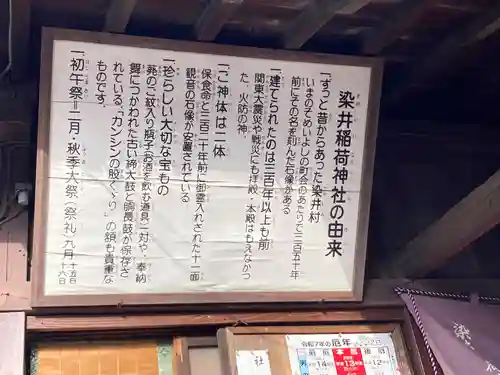 染井稲荷神社の由来
一ずっと昔からあった染井村
いまのそめいよしの町会のあたりで三百五十年
前にその名を刻んだ石像がある
一建てられたのは三百年以上も前
関東大震災や戦災にも拝殿、本殿はもえなかっ
た、火防の神。
一ご神体は二体
保食命と三百二十年前に御霊入れされた十一面
観音の石像が安置されている
一珍らしい大切な宝もの
葵のご紋入り瓶子(お酒を飲む道具)一対や、奉納
舞につかわれた古い締太鼓と鋲長鼓が保存さ
れている。「カンシンの股くぐり」の額も貴重な
ものです。
一初午祭=二月・秋季大祭(祭礼九月十五日十六日)
令和7年の厄年
前厄 本厄 後厄
染